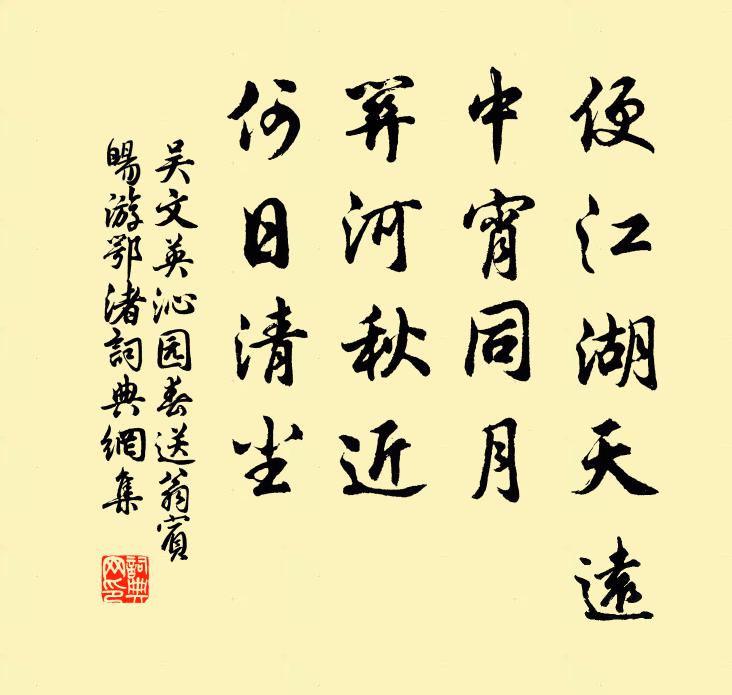 便江湖天遠
中宵同月
關河秋近
何日清尘
吴文英沁园春送翁賓
暘游鄂渚詞典網集
詞典
网印